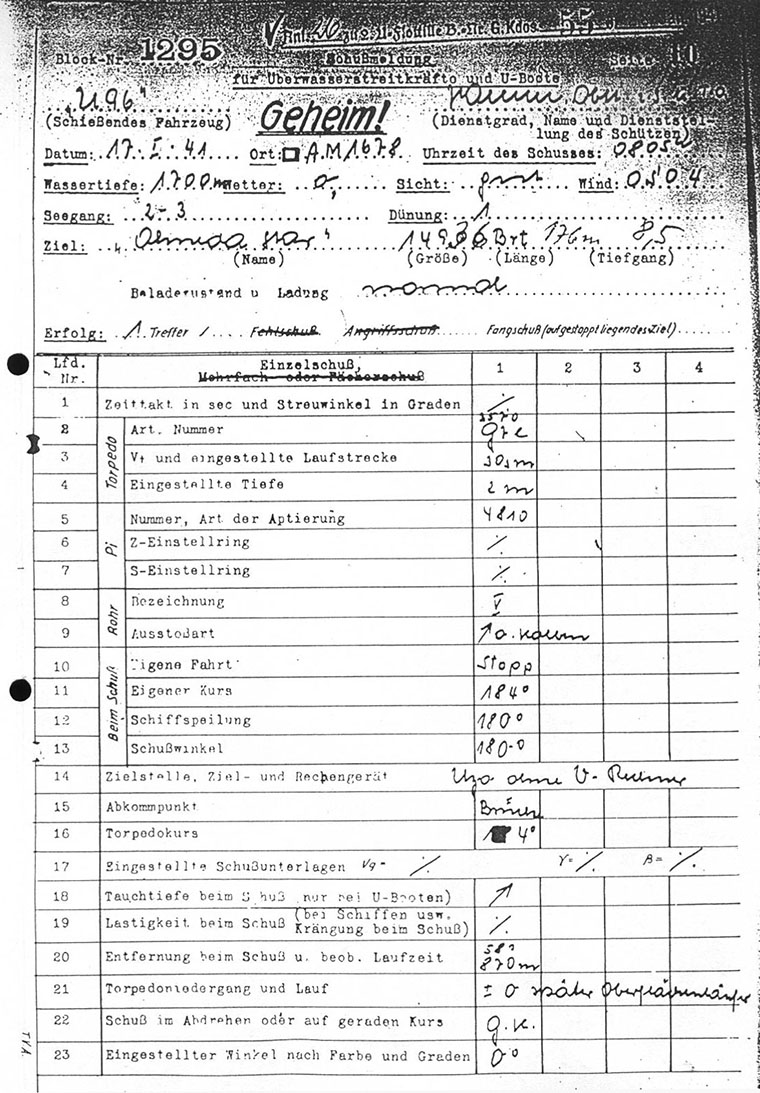 Block-Nr. 1295 Schußmeldung Seite 10
für Überwasserstreitkräfte und U-Boote
"U96" Geheim!
(Schießendes Fahrzeug) (Dienstgrad, Name und Dienststel-
lung des Schützen)
Datum: 17.I.41 Ort: AM1678 Uhrzeit des Schusses: 0805
Wassertiefe: 1700m Wetter: Sicht: gut Wind: OSO4
Seegang: 2-3 Dünung: 1
Ziel: "Almeda Star" 14936 Brt 176m 8,5
(Name) (Größe) (Länge) (Tiefgang)
Beladezustand u Ladung normal
Erfolg: 1. Treffer / Fehlschuß Angriffsschuß Fangschuß (aufgestoppt liegendes Ziel)
Lfd. Nr. Einzelschuß, 1 2 3 4
Mehrfach- oder Fächerschuß
1 Zeittakt in sec und Streuwinkel in Graden ./.
Torpedo
2 Art. Nummer
3 Vt und eingestellte Laufstrecke
4 Eingestellte Tiefe 2 m
Pi
5 Nummer, Art der Aptierung 4810
6 Z-Einstellring ./.
7 S-Einstellring ./.
Rohr
8 Bezeichnung V
9 Ausstoßart
Beim Schuß
10 Eigene Fahrt Stopp
11 Eigener Kurs 184°
12 Schiffspeilung 180°
13 Schußwinkel 180°
14 Zielstelle, Ziel- und Rechengerät Uzo ohne V-Rechner
15 Abkommpunkt Brücke
16 Torpedokurs 4°
17 Eingestellte Schußunterlagen Vg= ./. γ= ./. β= ./.
18 Tauchtiefe beim Schuß (nur bei U-Booten)
19 Lastigkeit beim Schuß (bei Schiffen usw. Krängung beim Schuß) ./.
20 Entfernung beim Schuß u. beob. Laufzeit 870m
21 Torpedoniedergang und Lauf ± 0 später Oberflächenläufer
22 Schuß im Abdrehen oder auf geraden Kurs g.K.
23 Eingestellter Winkel nach Farbe und Graden 0°